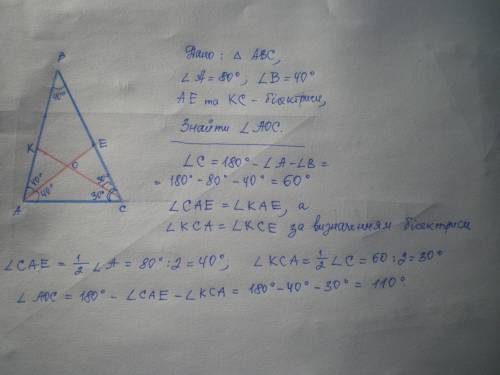 Дано: △ ABC,
∠A=80°, ∠B=40°
AE та KC - бісектриси,
Знайти ∠AOC.
∠C = 180° - ∠A - ∠B =
= 180° - 80° - 40° = 60°
∠CAE = ∠KAE, а
∠KCA = ∠KCE за визначенням бісектриси
∠CAE = 1/2 ∠A = 80°:2 = 40°, ∠KCA = 1/2 ∠C = 60:2 = 30°
∠AOC = 180° - ∠CAE - ∠KCA = 180° - 40° - 30° = 110°.
B
40°
K
E
O
40°
40°
30°
A
C